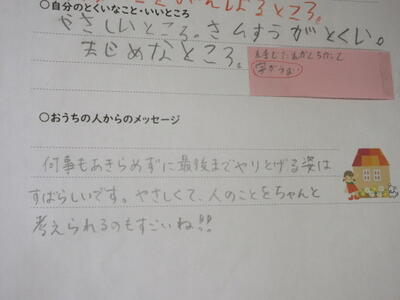 ところ。
○自分のとくいなこと・いいところ
やさしいところ。さんすうがとくい。
まじめなところ。
字がうまい
○おうちの人からのメッセージ
何事もあきらめずに最後までやりとげる姿は
すばらしいです。やさしくて、人のことをちゃんと
考えられるのもすごいね!!